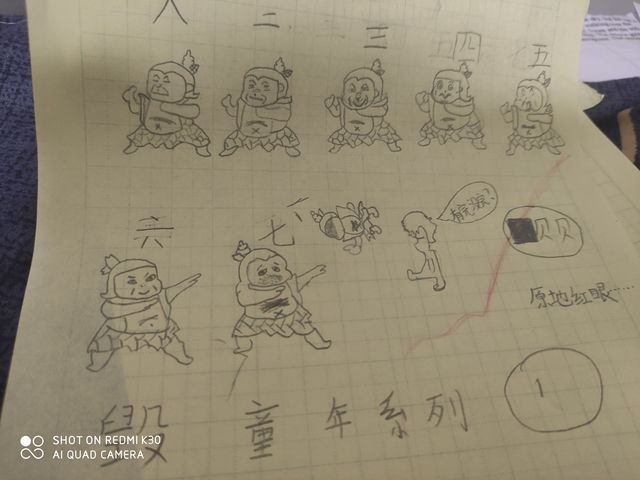 二 三 四 五
六 七
有完没完?
贝贝
原地红眼……
毁童年系列
1
SHOT ON REDMI K30
AI QUAD CAMERA